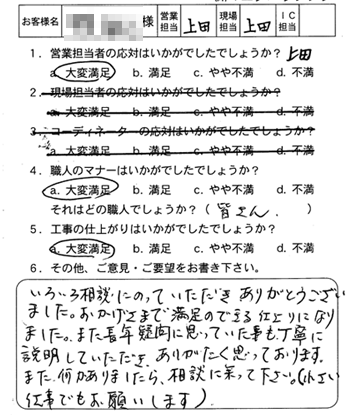 お客様名 様 営業担当 上田 現場担当 上田 IC担当
1. 営業担当者の応対はいかがでしたでしょうか? 上田
a. 大変満足 b. 満足 c. やや不満 d. 不満
2. 現場担当者の応対はいかがでしたでしょうか?
a. 大変満足 b. 満足 c. やや不満 d. 不満
3. コーディネーターの応対はいかがでしたでしょうか?
a. 大変満足 b. 満足 c. やや不満 d. 不満
4. 職人のマナーはいかがでしたでしょうか?
a. 大変満足 b. 満足 c. やや不満 d. 不満
それはどの職人でしょうか? ( 皆さん. )
5. 工事の仕上がりはいかがでしたでしょうか?
a. 大変満足 b. 満足 c. やや不満 d. 不満
6. その他、ご意見・ご要望をお書き下さい。
いろいろ相談にのっていただき ありがとうござい
ました。おかげさまで満足のできる仕上りになり
ました。また長年疑問に思っていた事も丁寧に
説明していただき、ありがたく思っております。
また、何かありましたら、相談に乗って下さい。(小さい
仕事でもお願いします)